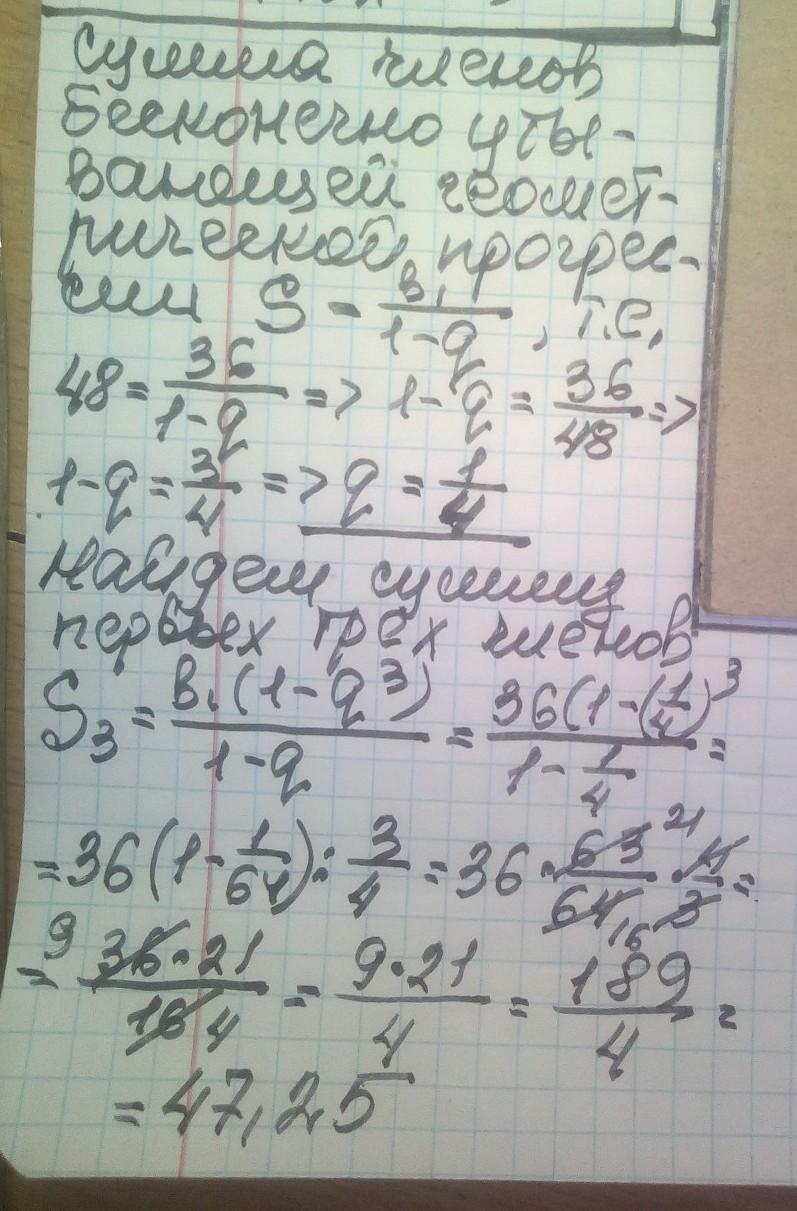 Сумма членов
бесконечно убы-
вающей геомет-
рической прогрес-
сии S = b₁/(1-q), т.е.
48 = 36/(1-q) => 1-q = 36/48 =>
1-q = 3/4 => q = 1/4
Найдем сумму
первых трёх членов
S₃ = b₁(1-q³)/(1-q) = 36(1-(1/4)³/(1-1/4) =
= 36(1-1/64) : 3/4 = 36 · 63/64 · 4/3 = 21 16
= 9 36·21/16 4 = 9·21/4 = 189/4 =
= 47,25